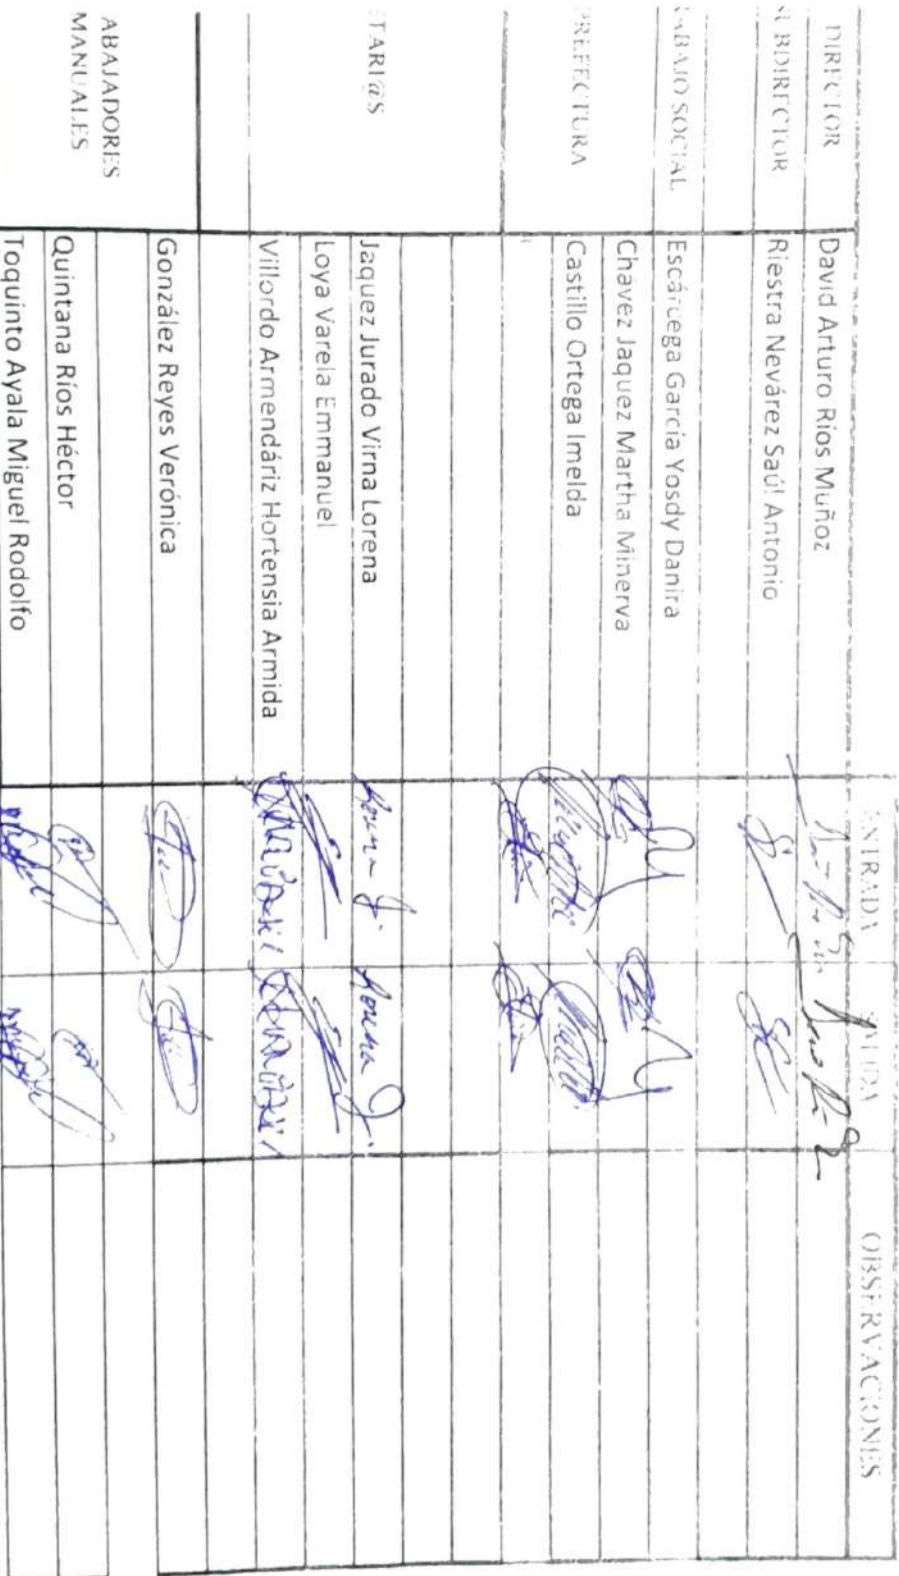 ENTRADA SALIDA OBSERVACIONES
DIRECTOR David Arturo Ríos Muñoz
SUBDIRECTOR Riestra Nevárez Saúl Antonio
ABAJO SOCIAL Escárcega García Yosdy Danira
Chávez Jaquez Martha Minerva
PREFECTURA Castillo Ortega Imelda
TARI@S Jaquez Jurado Virna Lorena
Loya Varela Emmanuel
Villordo Armendáriz Hortensia Armida
González Reyes Verónica
ABAJADORES
MANUALES Quintana Ríos Héctor
Toquinto Ayala Miguel Rodolfo